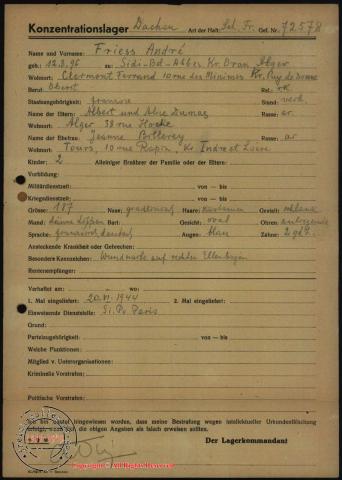 Konzentrationslager Dachau Art der Haft: Sch. Fr. Gef. Nr. 72578
Name und Vorname: Friess André
geb.: 12.3.96 zu: Sidi-Bel-Abbès Kr. Oran, Alger
Wohnort: Clermont Ferrand, 10 rue des Minimes Kr. Puy de Dome
Beruf: Oberst Rel.: rk
Staatsangehörigkeit: franzose Stand: verh.
Name der Eltern: Albert und Alice Dumas Rasse: ar
Wohnort: Alger 38 rue Hoche
Name der Ehefrau: Jeanne Rasse: ar
Wohnort: Tours, 10 rue Kr. Indre et Loire
Kinder: 2 Alleiniger Ernährer der Familie oder der Eltern:
Vorbildung:
Militärdienstzeit: von — bis
Kriegsdienstzeit: von — bis
Grösse: 187 Nase: gradlinig Haare: Gestalt: schlank
Mund: Gesicht: oval Ohren:
Sprache: deutsch Augen: blau Zähne:
Ansteckende Krankheit oder Gebrechen:
Besondere Kennzeichen: Wundnarbe auf rechten Ellenbogen
Rentenempfänger:
Verhaftet am: wo:
1. Mal eingeliefert: 20.VI.1944 2. Mal eingeliefert:
Einweisende Dienststelle: Si. Po Paris
Grund:
Parteizugehörigkeit: von — bis
Welche Funktionen:
Mitglied v. Unterorganisationen:
Kriminelle Vorstrafen:
Politische Vorstrafen:
Ich bin darauf hingewiesen worden, dass meine Bestrafung wegen intellektueller Urkundenfälschung
erfolgt, wenn sich die obigen Angaben als falsch erweisen sollten.
Der Lagerkommandant
Copyright © All Rights Reserved